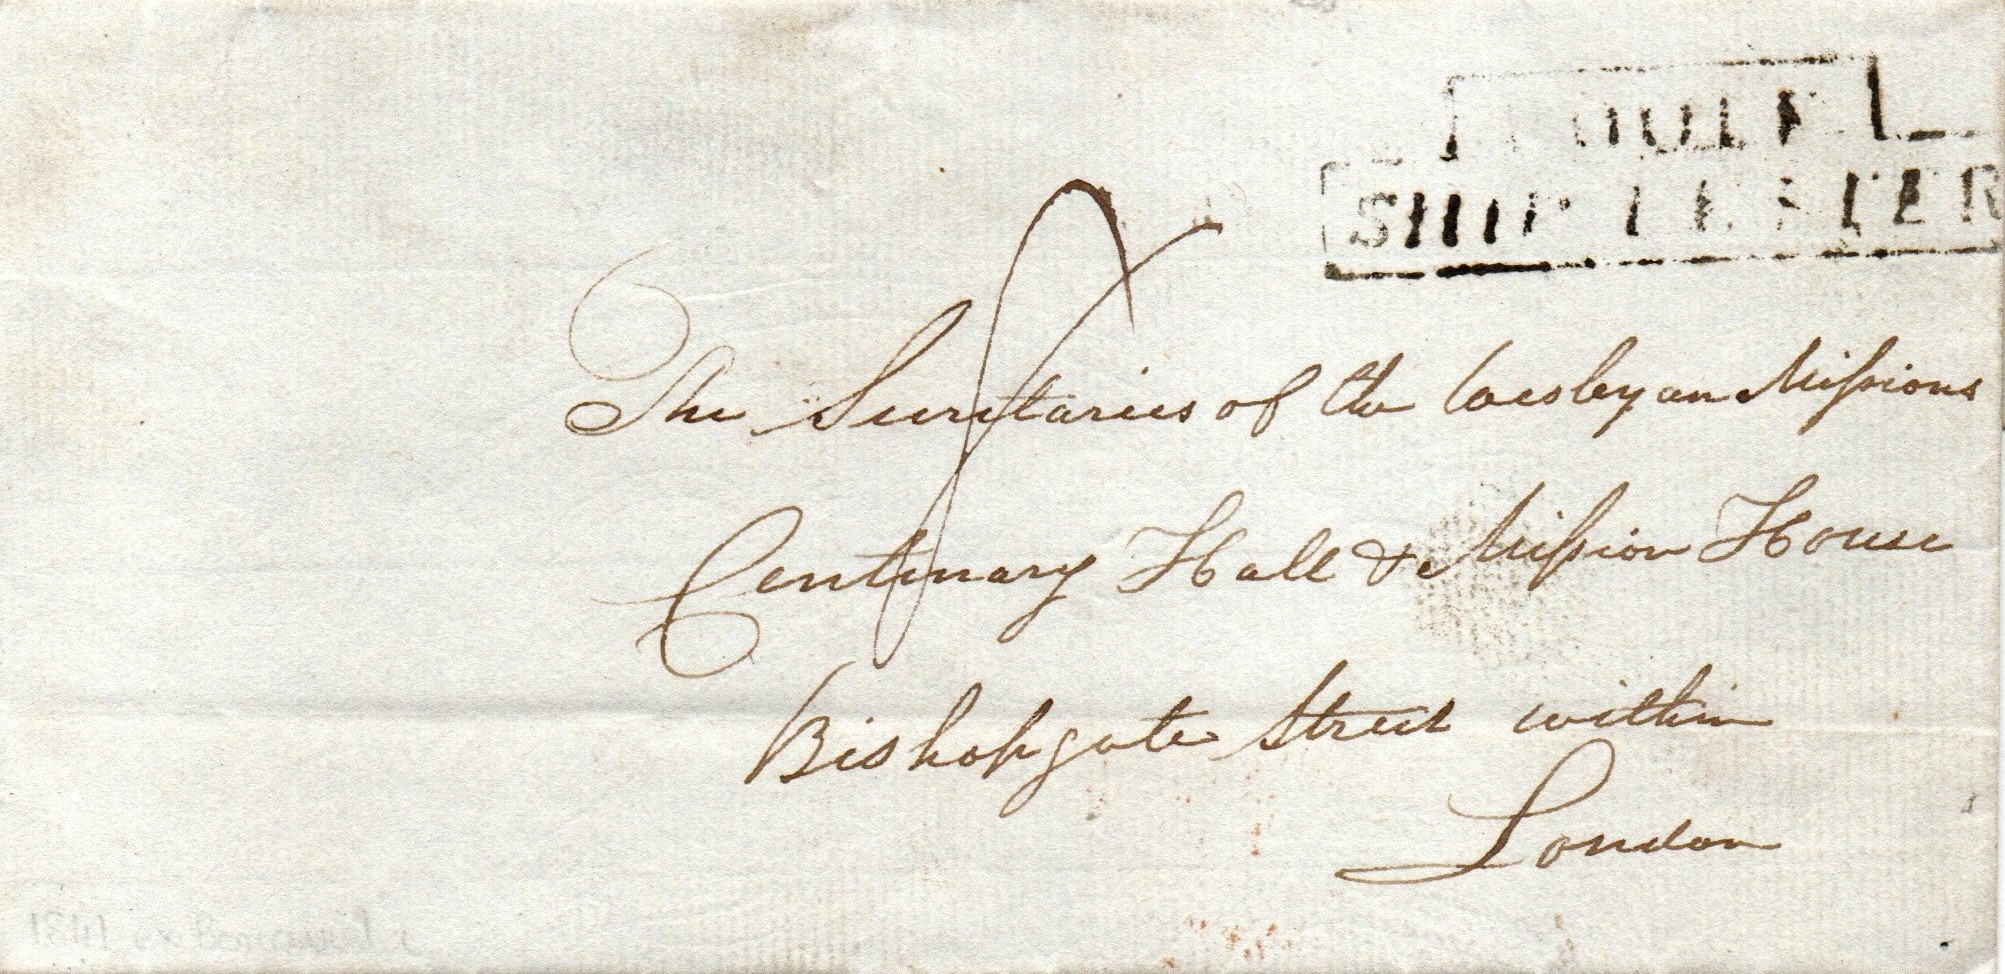 SHIP LETTER
The Secretaries of the Wesleyan Missions
Centenary Hall & Mission House
Bishopgate Street within
London